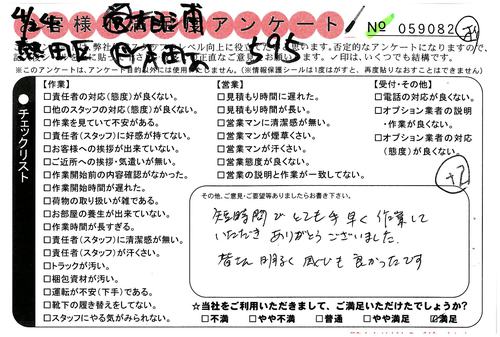 お客様満足度アンケート！
№ 059082
4/24
595
弊社サービスレベル向上に役立てたいと思います。否定的なアンケートになりますので、
正直なご意見をお願いします。✓印は、いくつでも結構です。
※このアンケートは、アンケート目的以外には使用いたしません。（※情報保護シールは1度はがすと、再度貼りなおすことはできません。）
●チェックリスト
【作業】
□責任者の対応（態度）が良くない。
□他のスタッフの対応（態度）が良くない。
□作業を見ていて不安がある。
□責任者（スタッフ）に好感が持てない。
□お客様への挨拶が出来ていない。
□ご近所への挨拶・気遣いが無い。
□作業開始前の内容確認がなかった。
□作業開始時間が遅れた。
□荷物の取り扱いが雑である。
□お部屋の養生が出来ていない。
□作業時間が長すぎる。
□責任者（スタッフ）に清潔感が無い。
□責任者（スタッフ）が汗くさい。
□トラックが汚い。
□梱包資材が汚い。
□運転が不安（下手）である。
□靴下の履き替えをしてない。
□スタッフにやる気がみられない。
【営業】
□見積もり時間に遅れた。
□見積もり時間が長い。
□営業マンに清潔感が無い。
□営業マンが煙草くさい。
□営業マンが汗くさい。
□営業態度が良くない。
□営業の説明と作業が一致してない。
【受付・その他】
□電話の対応が良くない。
□オプション業者の説明
・作業が良くない。
□オプション業者の対応
（態度）が良くない。
+2
その他、ご意見・ご要望等ありましたらお書き下さい。
短時間でとても手早く作業して
いただきありがとうございました。
皆さん明るく感じも良かったです
☆当社をご利用いただきまして、ご満足いただけたでしょうか？
□不満 □やや不満 □普通 □やや満足 ☑満足